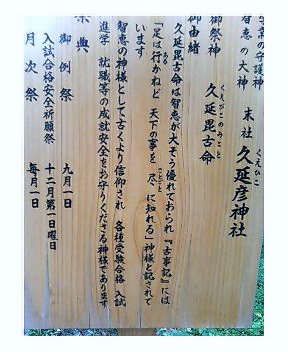 業の守護神
智恵の大神 末社 久延彦神社
くえひこ
御祭神 久延毘古命
くえびこのみこと
御由緒
久延毘古命は智恵が大そう優れておられ『古事記』には
「足は行かねど 天下の事を 尽に知れる」神様と記されて
ことごと
います
智恵の神様として古くより信仰され 各種受験合格 入試
進学 就職等の成就安全をお守りくださる神様であります
祭典
御例祭 九月一日
入試合格安全祈願祭 十二月第一日曜日
月次祭 毎月一日